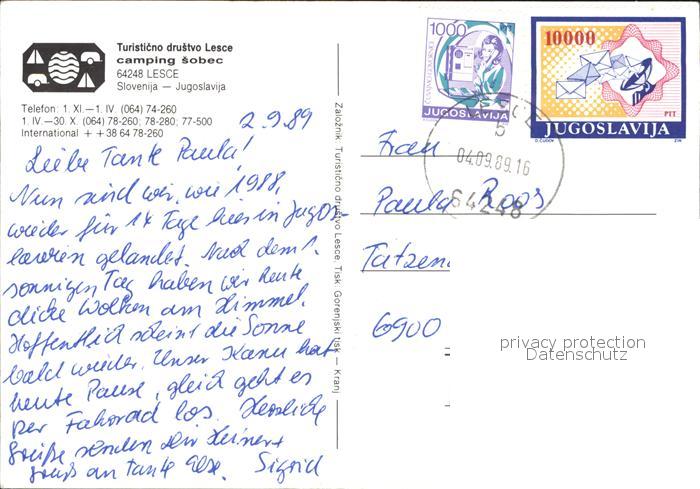 Turistično društvo Lesce
camping šobec
64248 LESCE
Slovenija — Jugoslavija
Telefon: 1. XI.—1. IV. (064) 74-260
1. IV.—30. X. (064) 78-260; 78-280; 77-500
International + + 38 64 78-260
2.9.89
Liebe Tante Paula!
Nun sind wir, wie 1988,
wieder für 14 Tage hier in Jugos-
lawien gelandet. Nach dem 1.
sonnigen Tag haben wir heute
dicke Wolken am Himmel.
Hoffentlich scheint die Sonne
bald wieder. Unser Kanu hat
heute Pause, gleich geht es
per Fahrrad los. Herzliche
Grüße senden Dir Heiner +
Gruß an Tante Else. Sigrid
Založnik Turistično društvo Lesce, Tisk Gorenjski tisk — Kranj
1000
PTT
JUGOSLAVIJA
10000
PTT
JUGOSLAVIJA
04.09.89.16
64248
Frau
Paula Roos
Tatzen
6900
privacy protection
Datenschutz